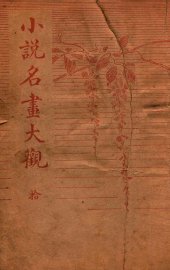 小說名畫大觀
拾